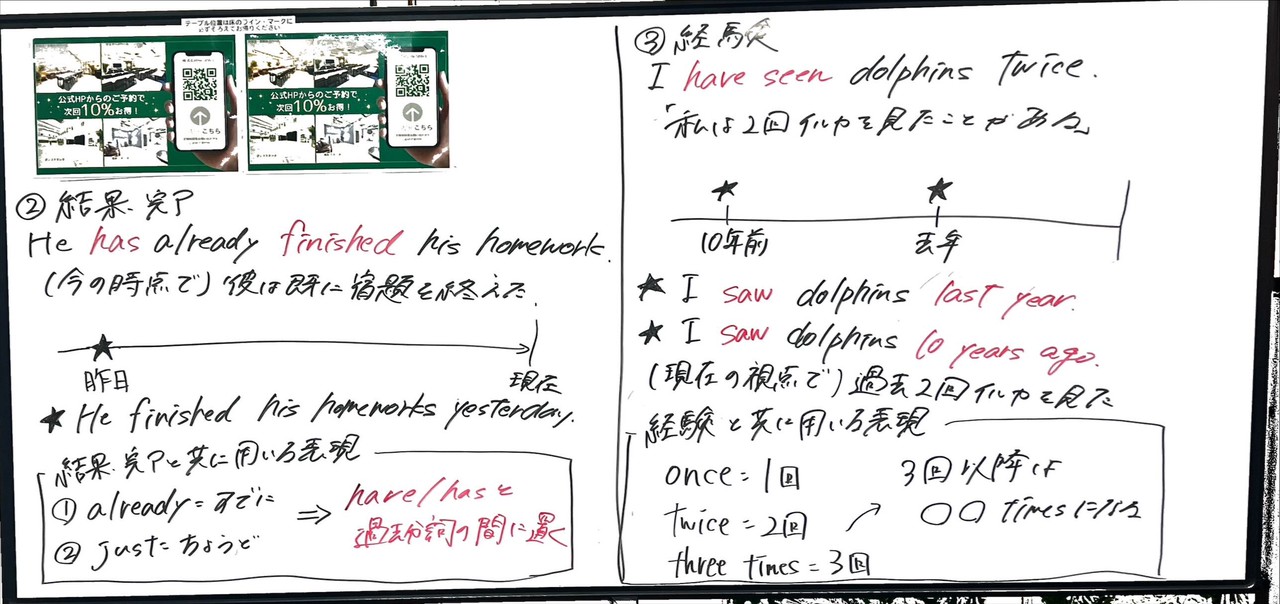 テーブル位置は床のライン・マークに
必ずそろえてお帰りください
公式HPからのご予約で
次回10%お得！
こちら
公式HPからのご予約で
次回10%お得！
こちら
② 結果、完了
He has already finished his homework.
(今の時点で) 彼は既に宿題を終えた.
昨日 現在
★ He finished his homeworks yesterday.
結果、完了と共に用いる表現
① already = すでに
② just = ちょうど
⇒ have/hasと
過去分詞の間に置く
③ 経験
I have seen dolphins twice.
「私は2回イルカを見たことがある」
10年前 去年
★ I saw dolphins last year.
★ I saw dolphins 10 years ago.
(現在の視点で) 過去2回イルカを見た
経験と共に用いる表現
once = 1回
twice = 2回
three times = 3回
3回以降は
○○ timesになる